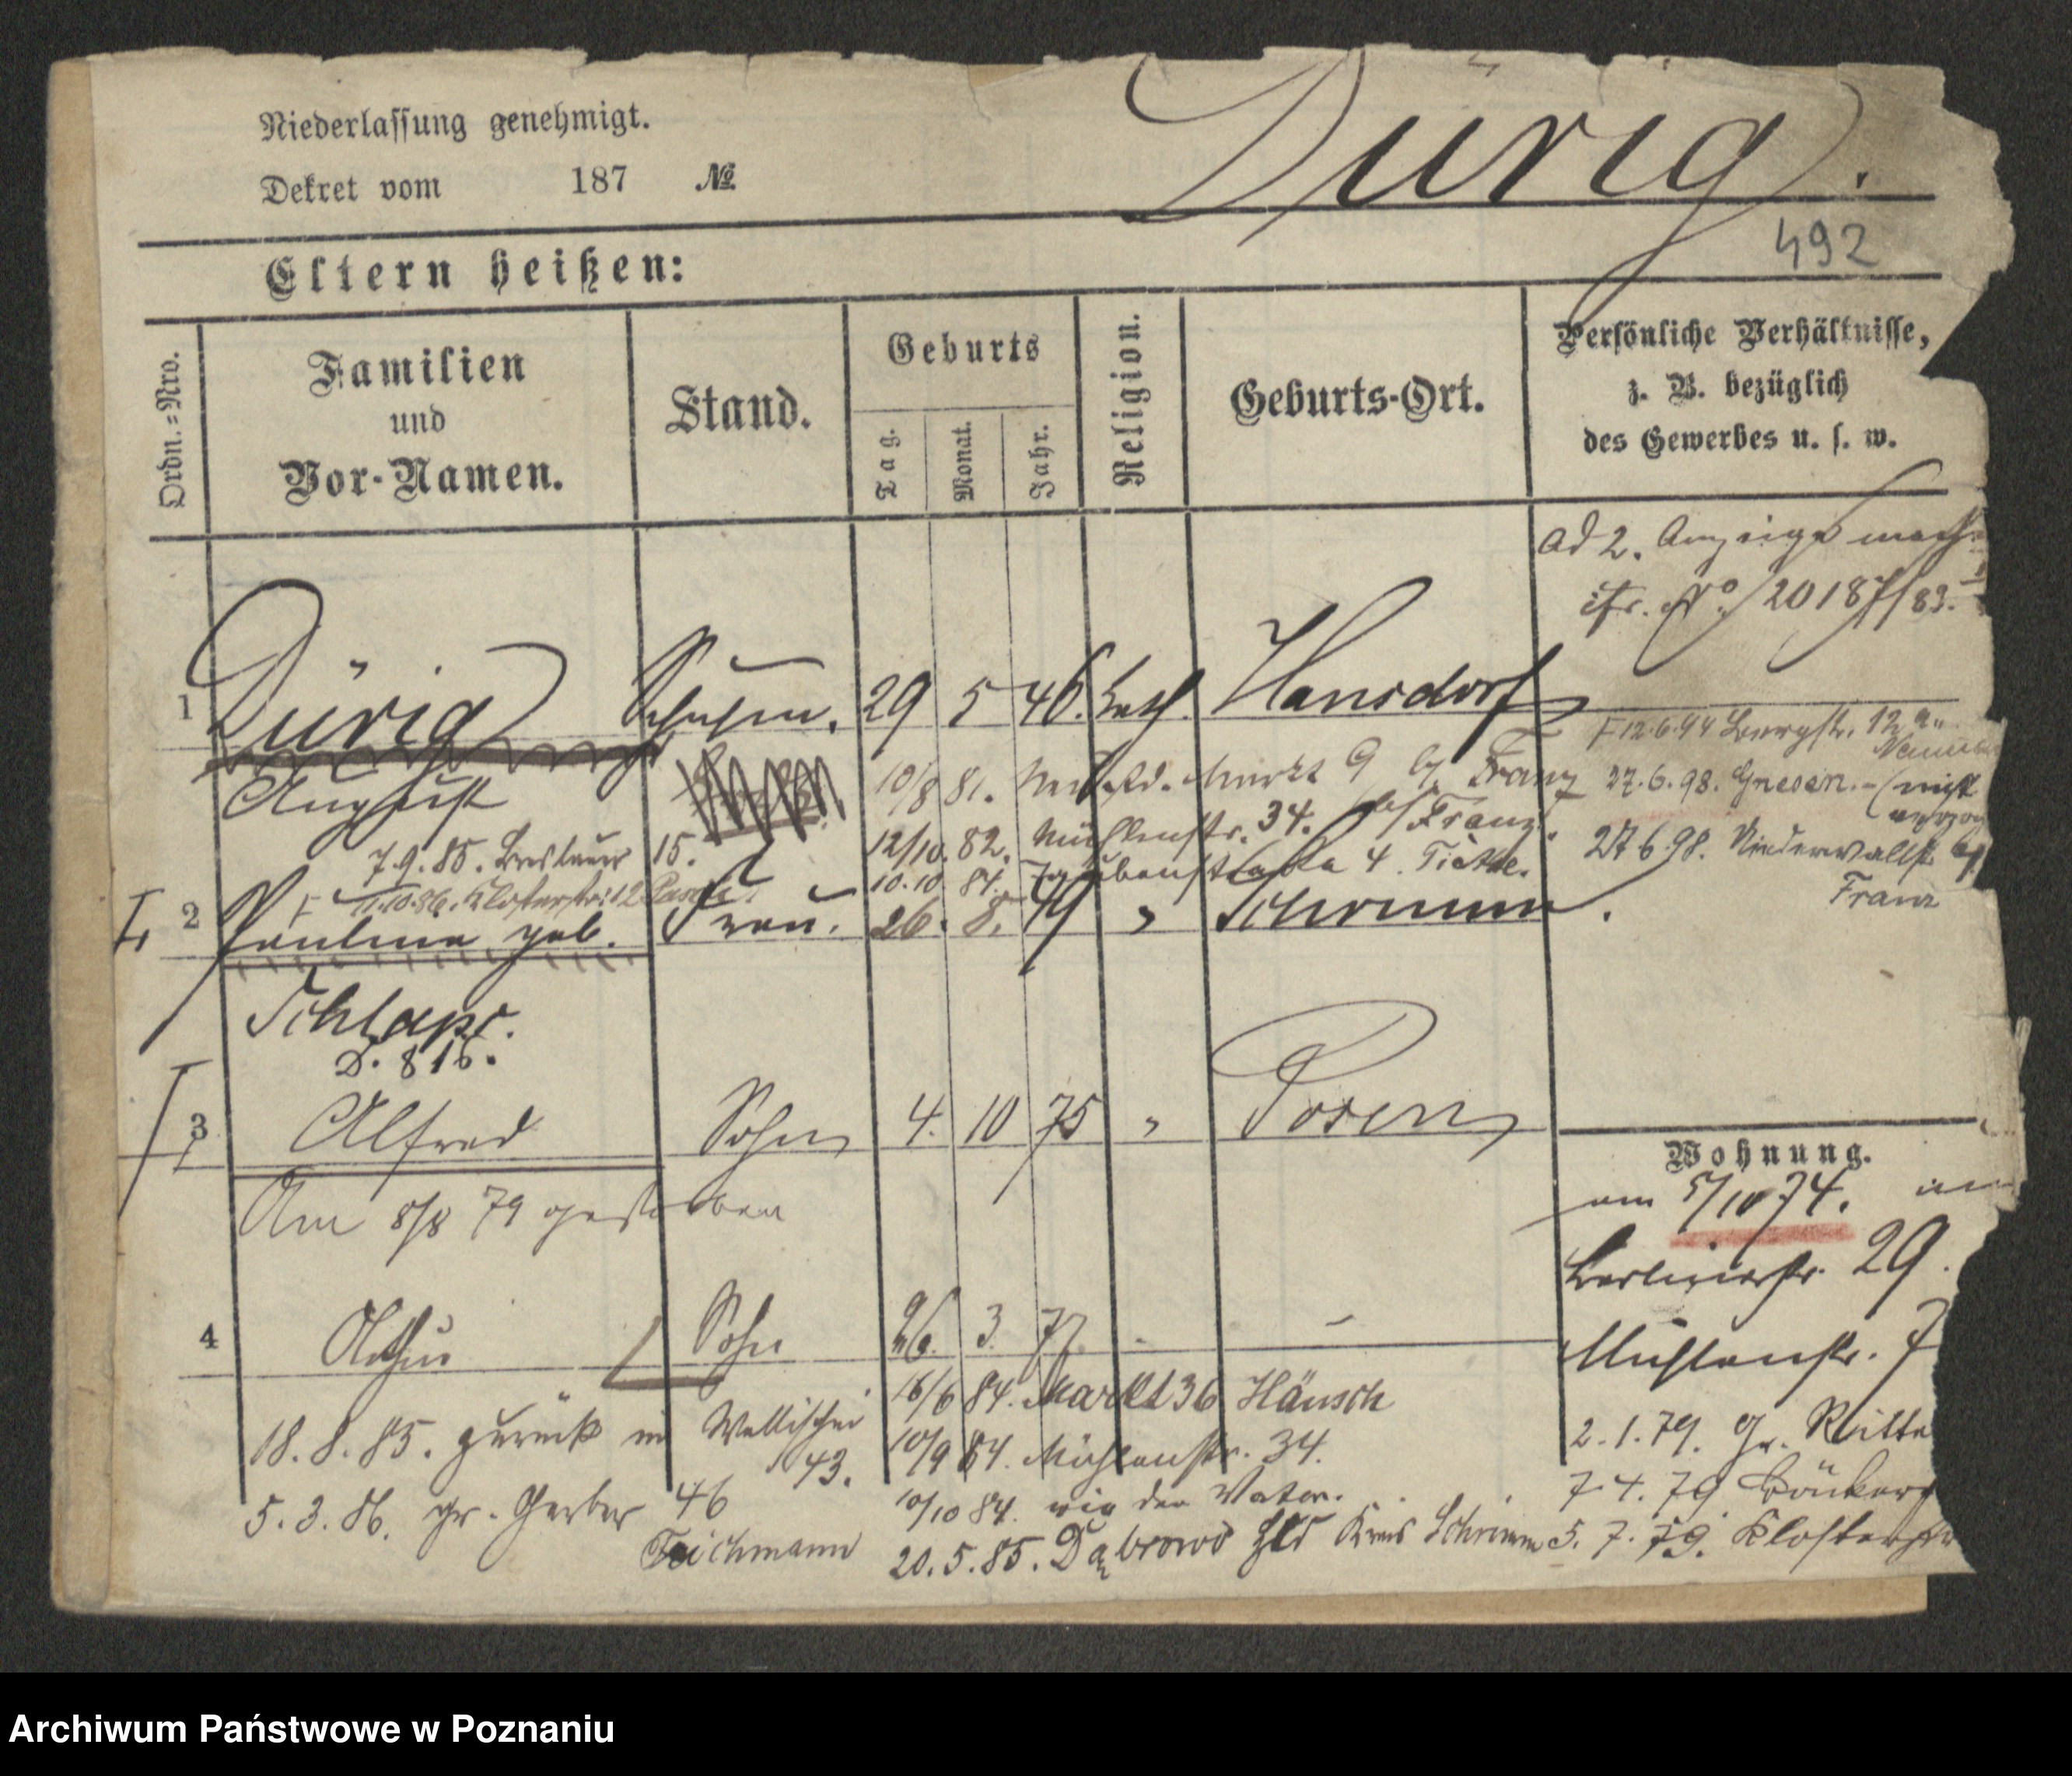 Niederlassung genehmigt.
Dekret vom 187 №
Dürig.
492
Eltern heißen:
Ordn.=Nro.
Familien
und
Vor-Namen.
Stand.
Geburts
Tag.
Monat.
Jahr.
Religion.
Geburts-Ort.
Persönliche Verhältnisse,
z. B. bezüglich
des Gewerbes u. s. w.
ad 2. Anzeige
No 20187/83.
1 Dürig 29 5 46. Hansdorf
August
12.6.94 Bergstr. 12a
10/8 81. Markt 9 Franz
27.6.98. Gnesen. - (nicht
12/10. 82. Mühlenstr. 34. Franz.
7.9.85. Breslauer 15.
10.10 84. Taubenstraße 4.
27 6 98. Niederwallstr.
Franz
11.10.86. Klosterstr. 12
2 Pauline geb. Frau. 26. 8. 49 " Schrimm.
Schlaps.
D. 816.
3 Alfred Sohn 4. 10 75 " Posen
Am 8/8 79 gestorben
Wohnung.
am 5/10 74.
Berlinerstr. 29.
Mühlenstr. 7
4 Arthur Sohn 26. 3. 77. - -
16/6 84. Markt 36 Häusch
18.8.85. zurück in Wallischei 43.
10/9 84. Mühlenstr. 34.
2.1.79. Gr. Ritte
5.3.86. gr. Gerber 46
Teichmann
10/10 84. wie der Vater.
7.4.79
20.5.85. Dąbrowo Kreis Schrimm
5.7.79. Klosterstr
Archiwum Państwowe w Poznaniu